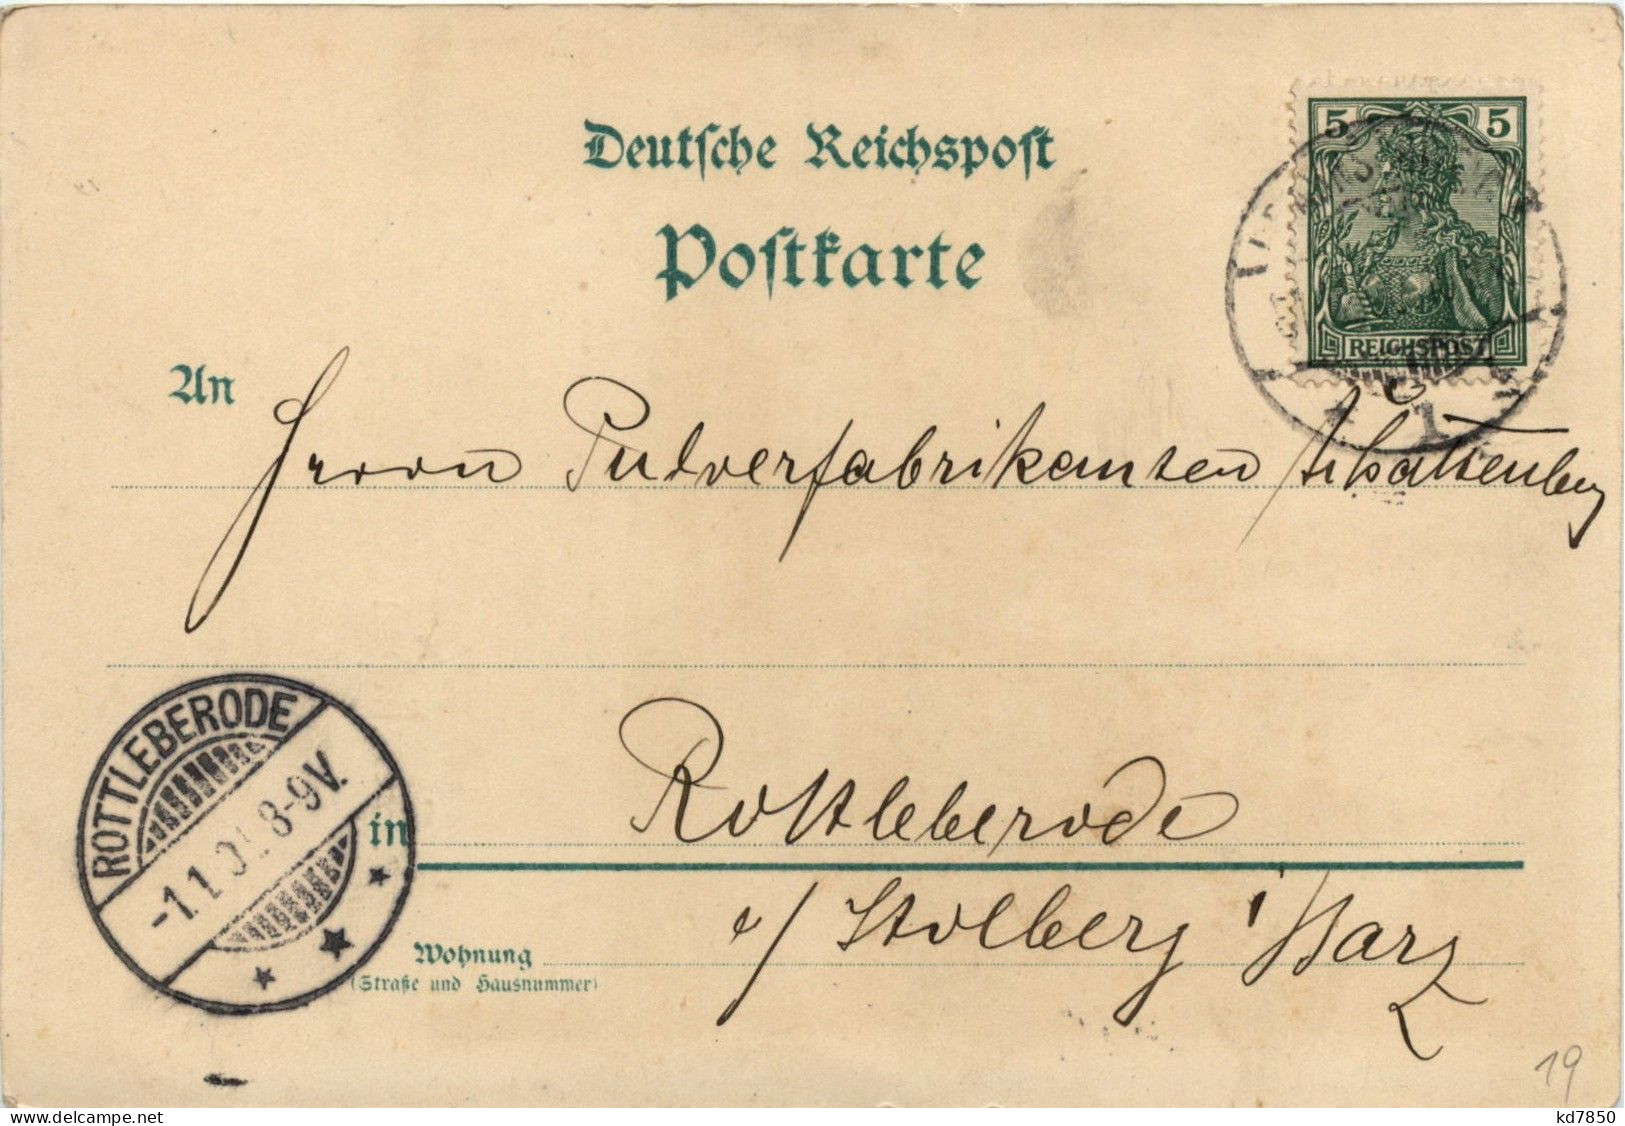 Deutsche Reichspost
Postkarte
5 5
REICHSPOST
An
Herrn Pulverfabrikanten
ROTTLEBERODE
-1.1.02.8-9V.
in Rottleberode
a/ Stolberg i/Harz
Wohnung
(Straße und Hausnummer)
19
kd7850